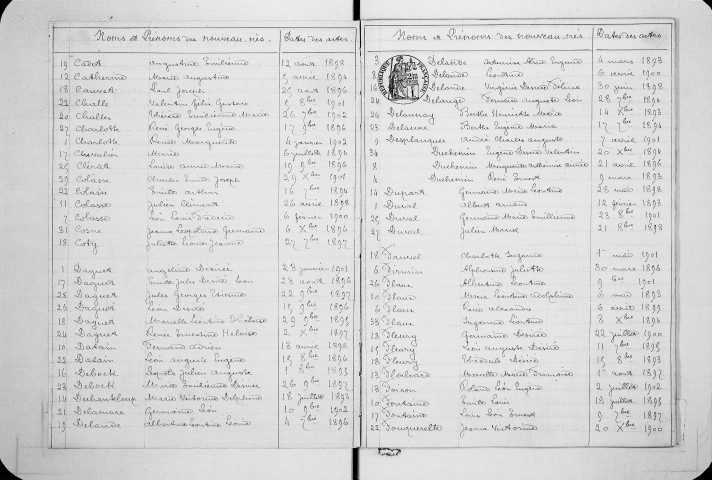 Noms et Prénoms des nouveau-nés. Dates des actes
19 Cadet Augustine Emilienne 12 août 1898
12 Catherine Marie Augustine 5 avril 1894
18 Cauvet Paul Joseph 25 août 1896
22 Challe Valentin Gustave 8bre 1901
20 Challes Emilienne Marie 26 7bre 1902
27 Charlotte René Georges Eugène 17 9bre 1896
1 Charlotte Renée Marguerite 4 janvier 1902
17 Chevalier Marie 6 juillet 1894
26 Louise Anna Marie 10 9bre 1896
29 Colasse Charles Emile Joseph 29 Xbre 1901
22 Colasse Emile Arthur 16 7bre 1894
11 Colasse Julien Clément 26 avril 1898
7 Colasse Léon Louis 6 février 1900
31 Cosne Jeanne Léopoldine Germaine 6 Xbre 1896
18 Coty Juliette Léonie Jeanne 27 7bre 1897
1 Daguet Angelina Désirée 23 janvier 1901
17 Daguet Emile Jules Désiré Léon 28 août 1896
28 Daguet Jules Georges 22 9bre 1897
26 Daguet Léon Désiré 15 9bre 1896
18 Daguet Marcelle Léontine 29 9bre 1895
24 Daguet Renée Ernestine Héloïse 2 Xbre 1897
10 Datain Fernand Adrien 18 avril 1896
22 Datain Léon Auguste Eugène 15 8bre 1896
16 Debock Léopold Julien Auguste 1 8bre 1895
23 Debock Marie Emilienne Denise 26 9bre 1897
14 Marie Victorine Delphine 18 juillet 1893
21 Delamare Germaine 10 9bre 1902
19 Delande Albertine Léontine Léonie 4 7bre 1896
Noms et Prénoms des nouveau-nés Dates des actes
3 Delande Eugène 4 mars 1893
8 Delande Léontine 6 avril 1900
16 Delande Virginie Désirée 30 juin 1898
24 Delange Fernand Auguste Léon 28 7bre 1894
24 Delaunay Berthe Henriette Marie 14 Xbre 1893
23 Delaune Berthe Eugénie Maria 17 7bre 1894
9 Desplanques André Charles Auguste 7 avril 1901
34 Duchemin Eugène Valentin 20 Xbre 1894
8 Duchemin Marguerite 21 avril 1896
4 Duchemin René Ernest 9 mars 1893
14 Dupart Germaine Marie Léontine 28 mai 1898
1 Duval Albert 12 février 1893
20 Duval Germaine Marie Emilienne 23 8bre 1901
27 Duval Julien Marcel 21 8bre 1898
18 Fauvel Charlotte Suzanne 1er mai 1901
6 Firmin Alphonsine Juliette 30 mars 1896
26 Flan Albertine Léontine 9bre 1901
10 Flan Maria Léontine Joséphine 6 mai 1893
6 Flan René Alexandre 6 avril 1899
33 Flan Suzanne Léontine 8 Xbre 1894
18 Fleury Germaine Désirée 22 juillet 1900
15 Fleury Léon Auguste Désiré 11 7bre 1895
18 Fleury Théodule Désiré 15 8bre 1893
13 Marcelle Marie Françoise 1er août 1897
13 Foison Roland Léon Eugène 2 juillet 1902
10 Fontaine Emile Louis 18 juillet 1895
17 Fontaine Louis Léon Ernest 9 7bre 1897
22 Fouquerelle Jeanne Victorine 20 Xbre 1900